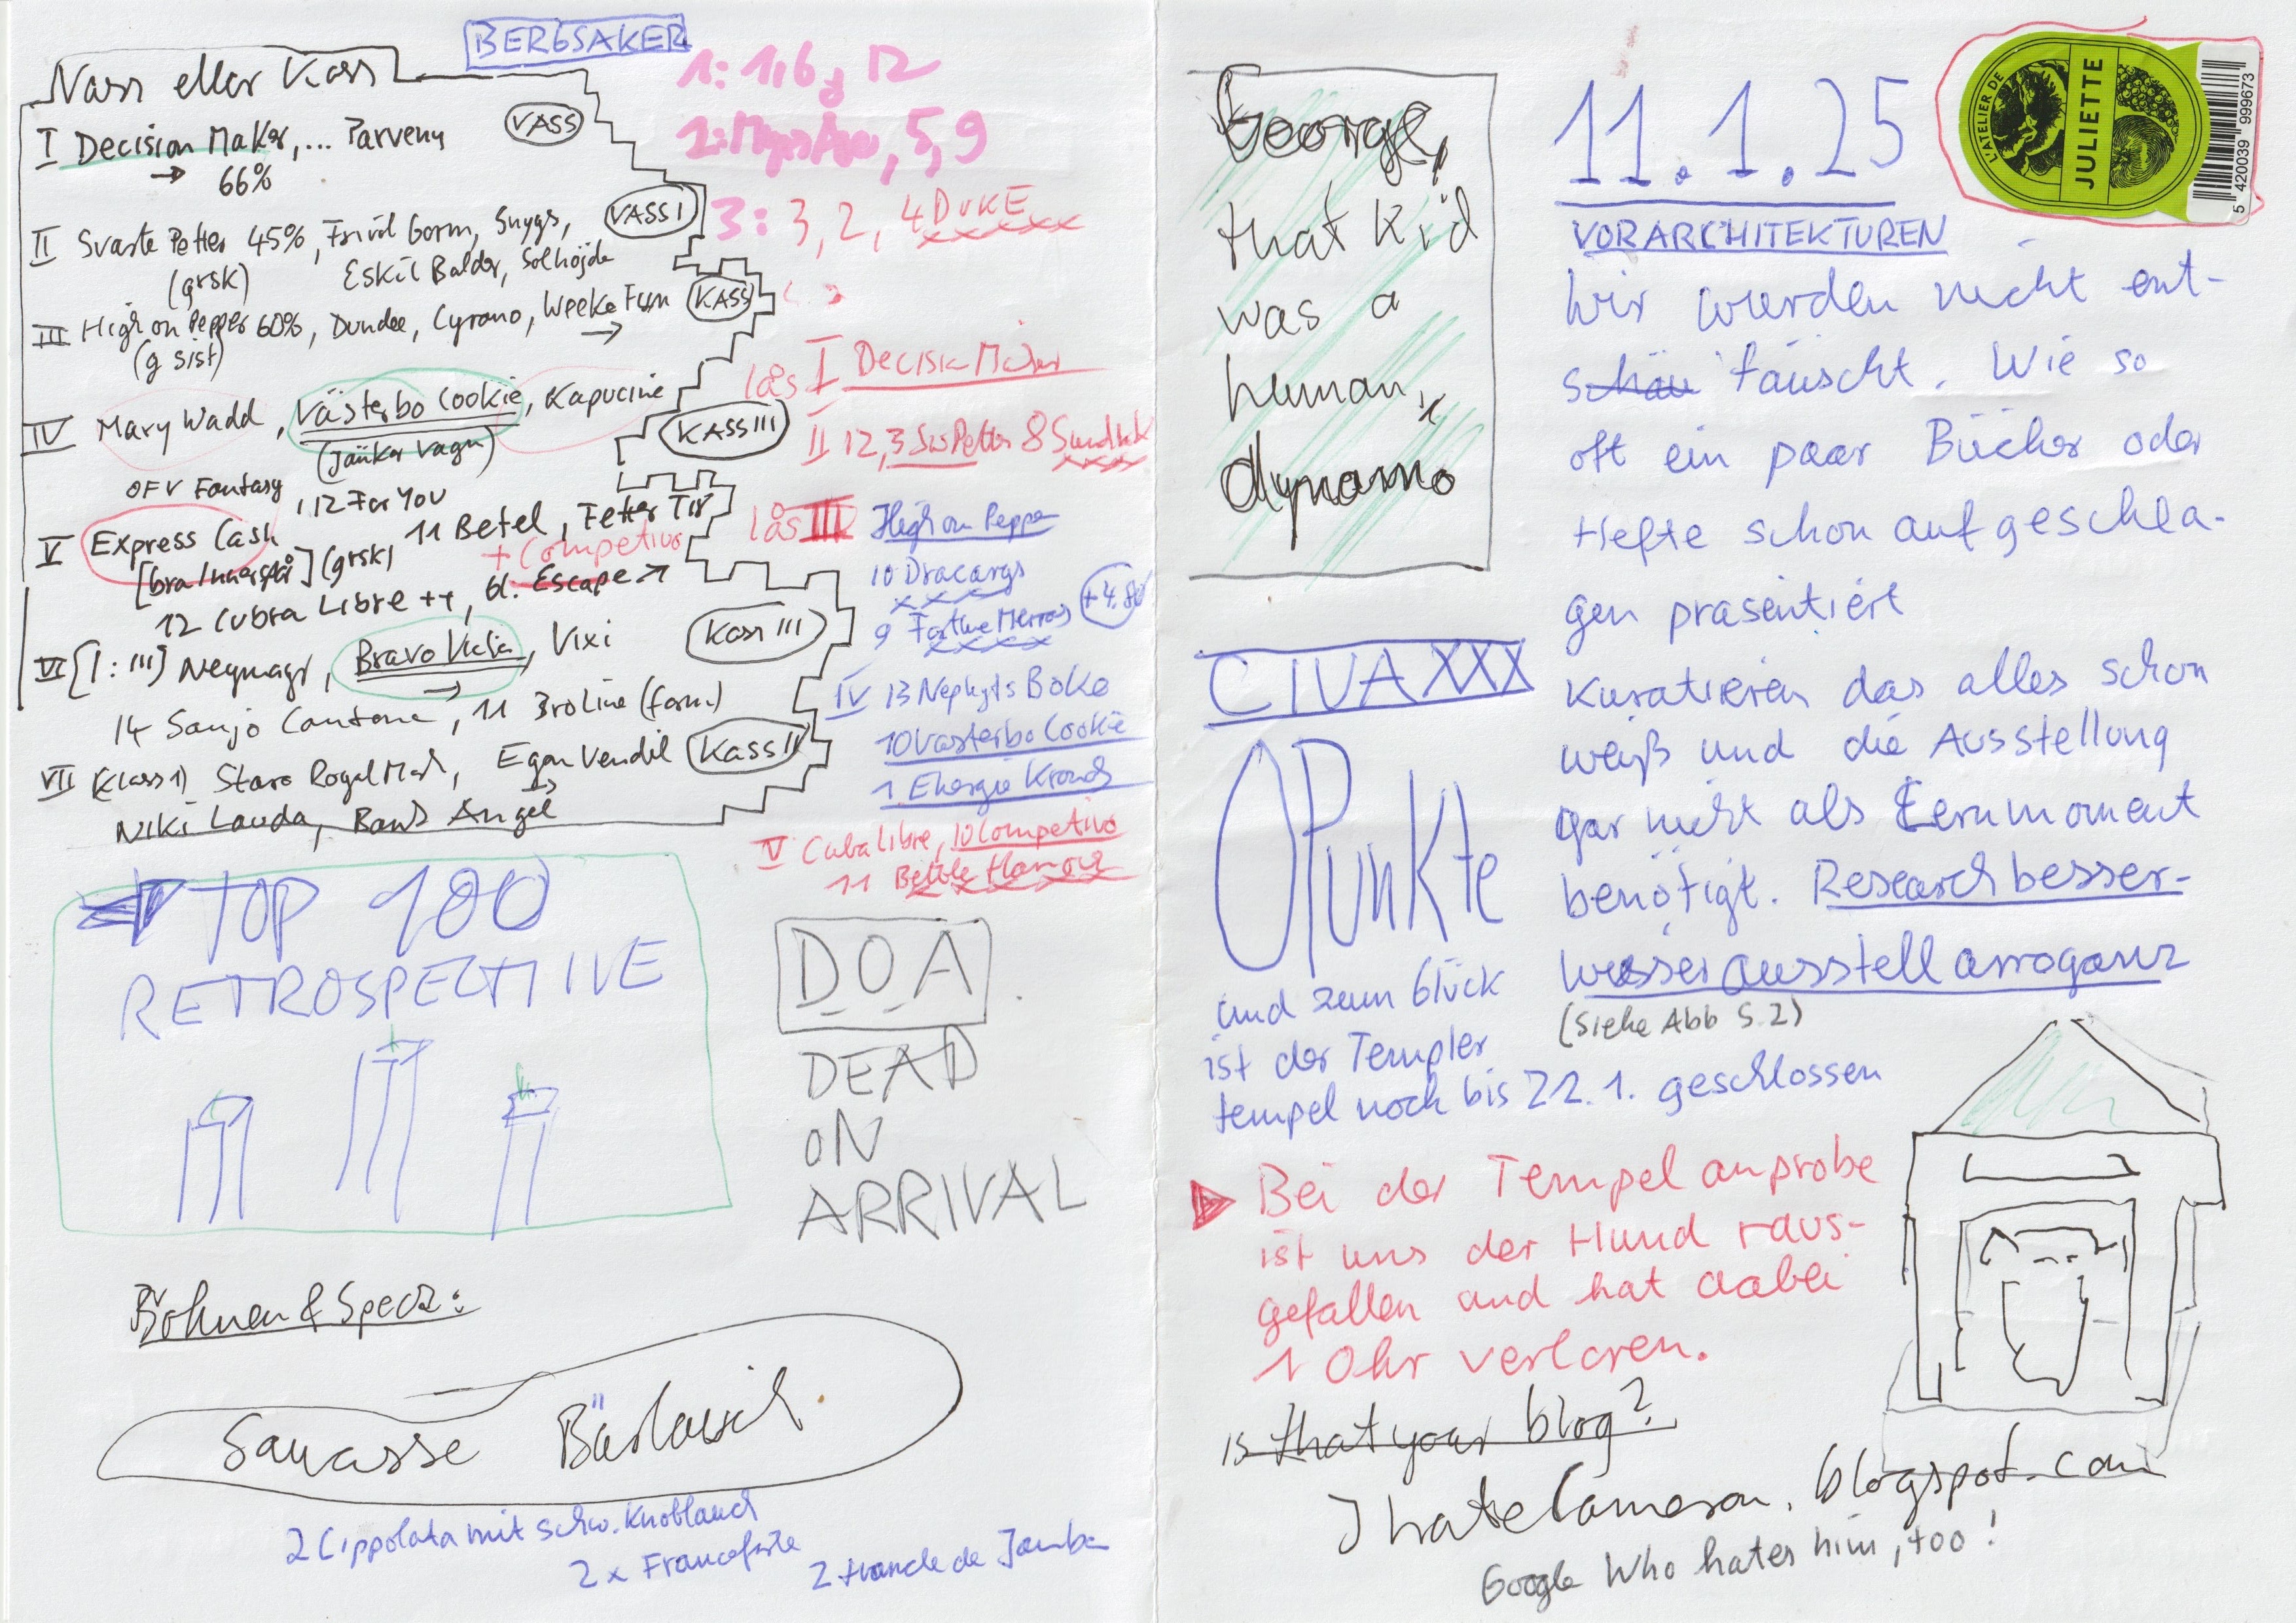 BERGSAKER
Vass eller Kass
I Decision Maker, ... Parveny
VASS
→ 66%
II Svarte Petter 45%, Frivil Gorm, Snygs,
VASS I
(grsk) Eskil Balder, Solhöjda
III High on Pepper 60%, Dundee, Cyrano, Weeke Fun
KASS
(g sist)
IV Mary Wadd, Västerbo Cookie, Kapucine
KASS III
(Janker vagn)
OFV Fantasy, 12 For You
V Express Cash 11 Betel, Fetter Tir
(grsk) + Competivo
12 Cubra Libre ++, bl. Escape
VI [1:III] Neymagr, Bravo Vichi, Vixi
Kass III
14 Sanjo Cantona, 11 BroLine (form.)
VII (Klass 1) Staro Rogal Mask, Egon Vendil
Kass II
Niki Lauda, Bands Angel
1: 1,6, 12
2: 5,9
3: 3, 2, 4 DUKE
lås I Decision Maker
II 12, 3 Sv Petter 8
lås III High on Pepper
10 Dracargs
9 +4.80
IV 13 Nephyts Boko
10 Västerbo Cookie
1 Energie Kronos
V Cuba Libre, 10 Competivo
11
TOP 100
RETROSPECTIVE
DOA
DEAD
ON
ARRIVAL
Bohnen & Speck:
Sauasse Bärlauch
2 Cippolata mit schw. Knoblauch
2 x Francforte
2 tranche de Jambon
George,
that kid
was a
human
dynamo
11.1.25
L'ATELIER DE
JULIETTE
5 420039 999673
VORARCHITEKTUREN
Wir wurden nicht ent-
schäu täuscht. Wie so
oft ein paar Bücher oder
Hefte schon aufgeschla-
gen präsentiert
Kuratieren das alles schon
weiß und die Ausstellung
gar nicht als Lernmoment
benötigt. Researchbesser-
wisserausstellarroganz
(Siehe Abb S. 2)
CIVA XXX
0 Punkte
und zum Glück
ist der Templer
tempel noch bis 22.1. geschlossen
Bei der Tempelanprobe
ist uns der Hund raus-
gefallen und hat dabei
1 Ohr verloren.
is that your blog?
IhateCameron.blogspot.com
Google Who hates him, too!